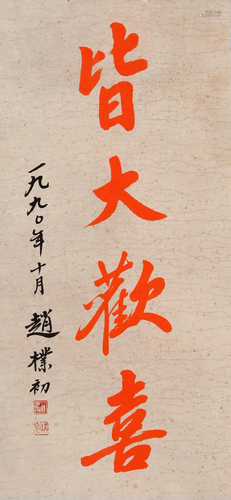 皆大歡喜
一九九〇年十月 趙樸初